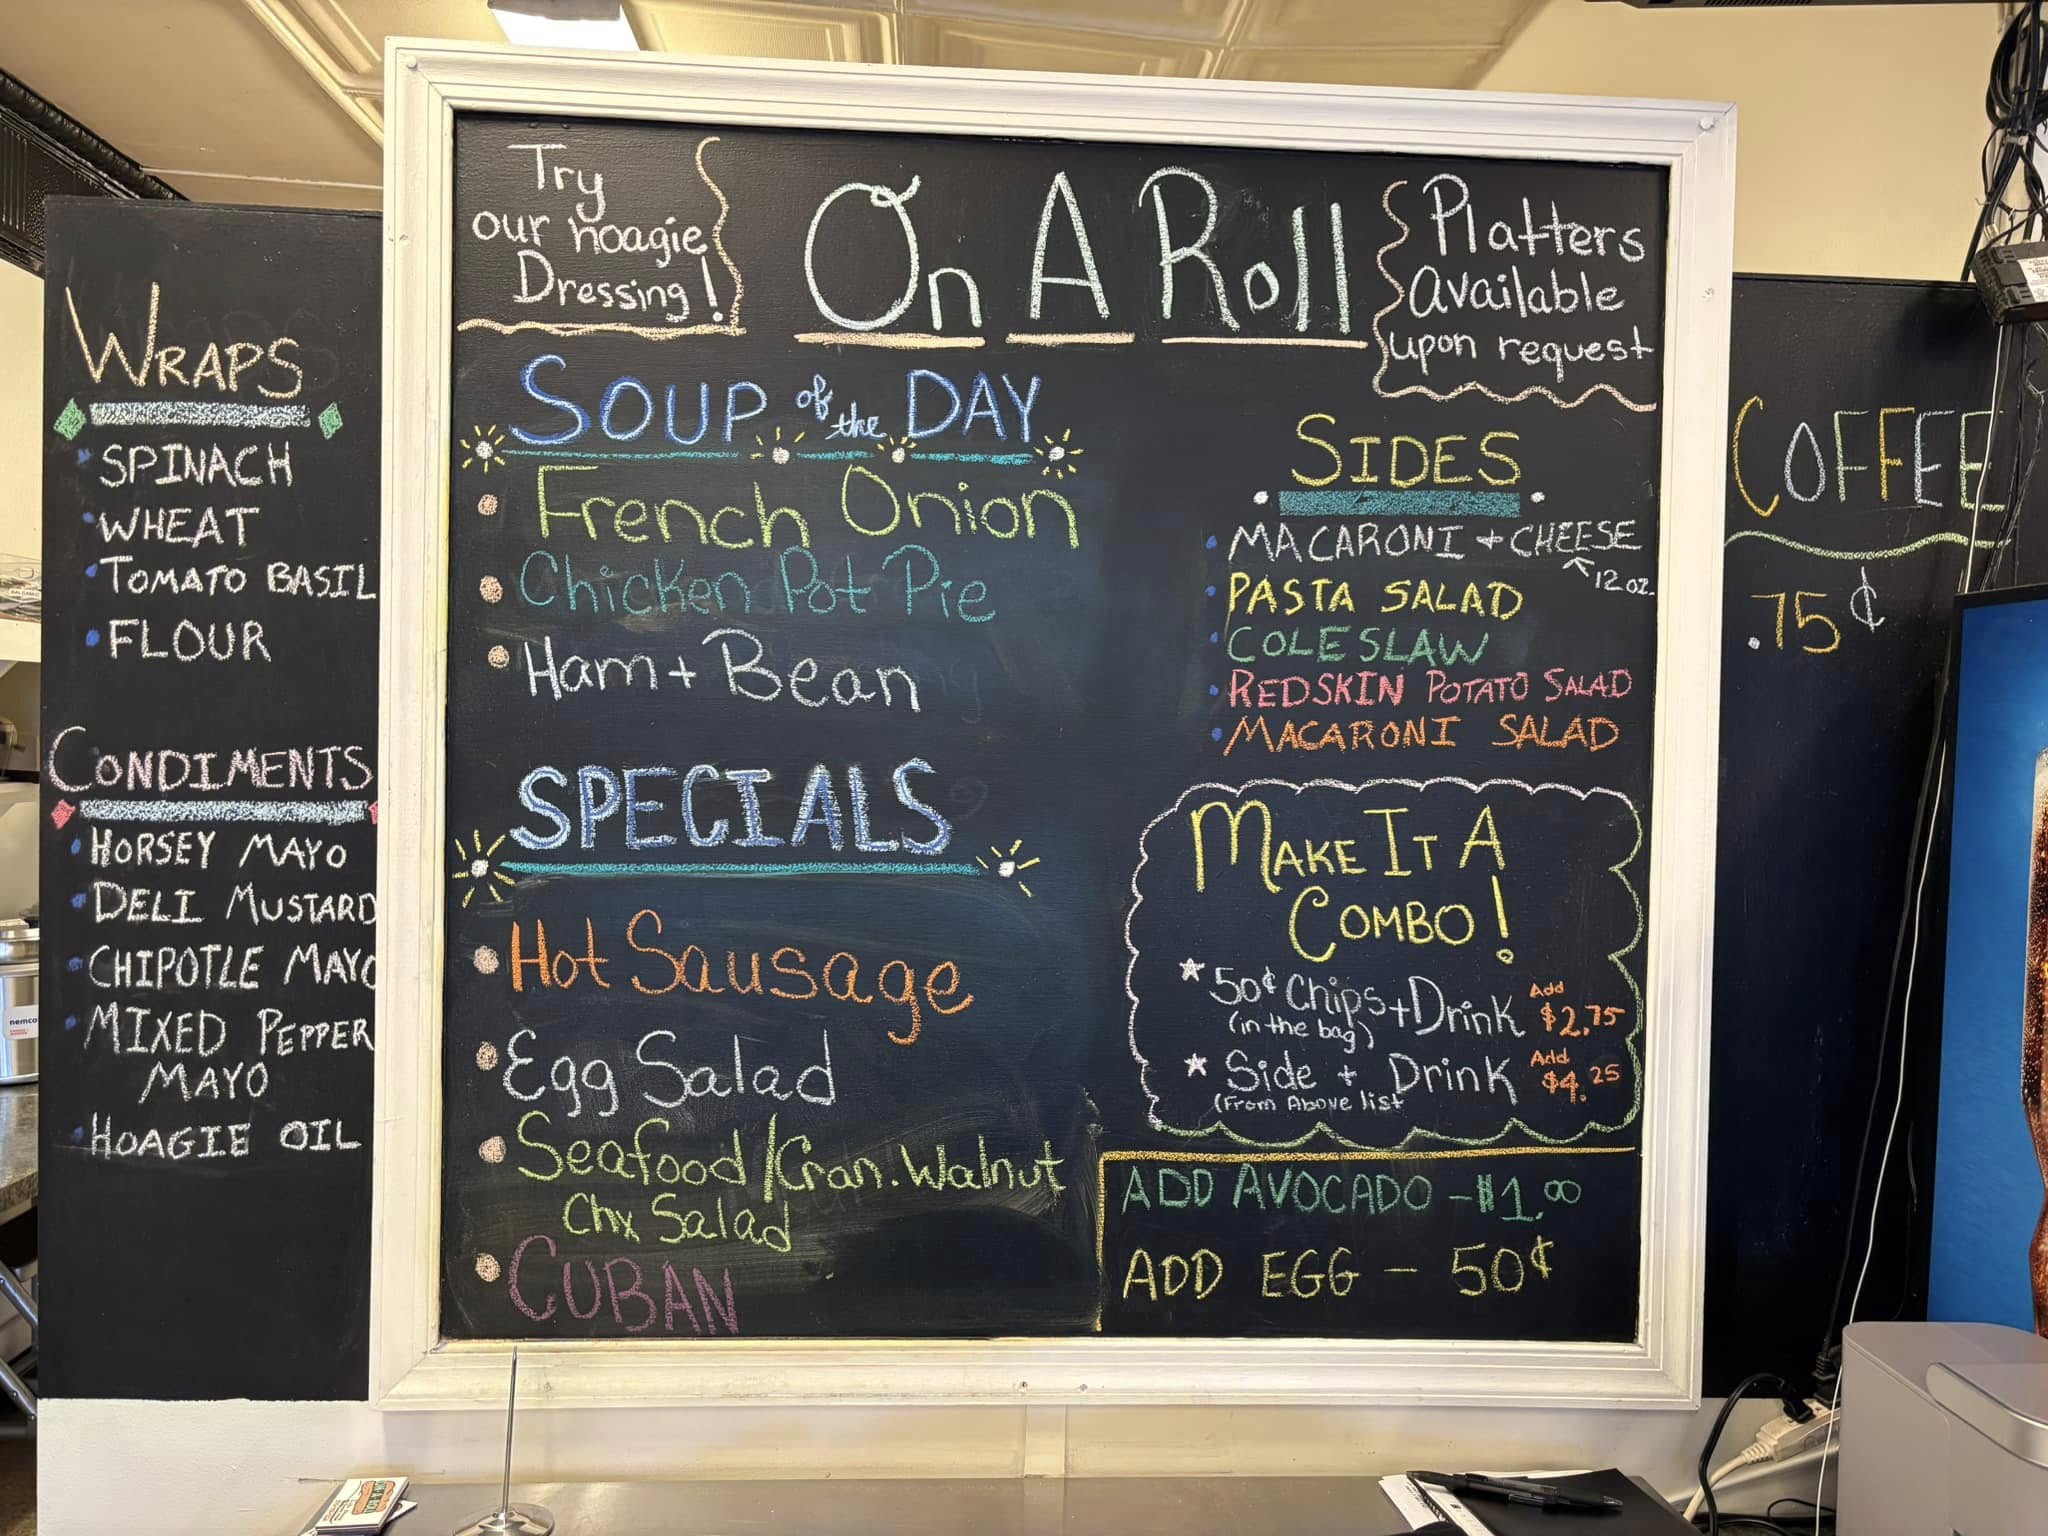 WRAPS
SPINACH
WHEAT
TOMATO BASIL
FLOUR
CONDIMENTS
HORSEY MAYO
DELI MUSTARD
CHIPOTLE MAYO
MIXED PEPPER
MAYO
HOAGIE OIL
Try
our hoagie
Dressing!
On A Roll
Platters
Available
upon request
SOUP of the DAY
French Onion
Chicken Pot Pie
Ham + Bean
SPECIALS
Hot Sausage
Egg Salad
Seafood/Cran. Walnut
Chx Salad
CUBAN
SIDES
MACARONI + CHEESE
12 oz.
PASTA SALAD
COLESLAW
REDSKIN POTATO SALAD
MACARONI SALAD
MAKE IT A
COMBO!
50¢ Chips + Drink Add $2.75
(in the bag)
Side + Drink Add $4.25
(From Above list
ADD AVOCADO - $1.00
ADD EGG - 50¢
COFFEE
.75¢
nemco